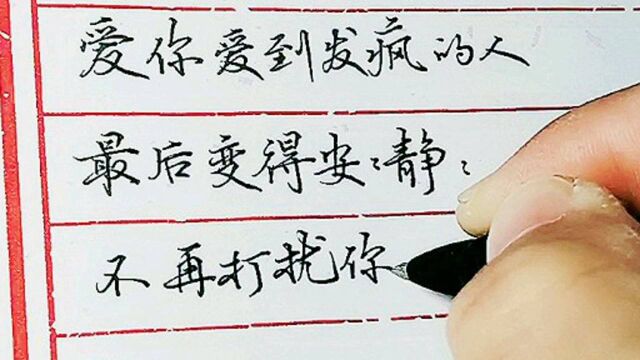 爱你爱到发疯的人
最后变得安静
不再打扰你